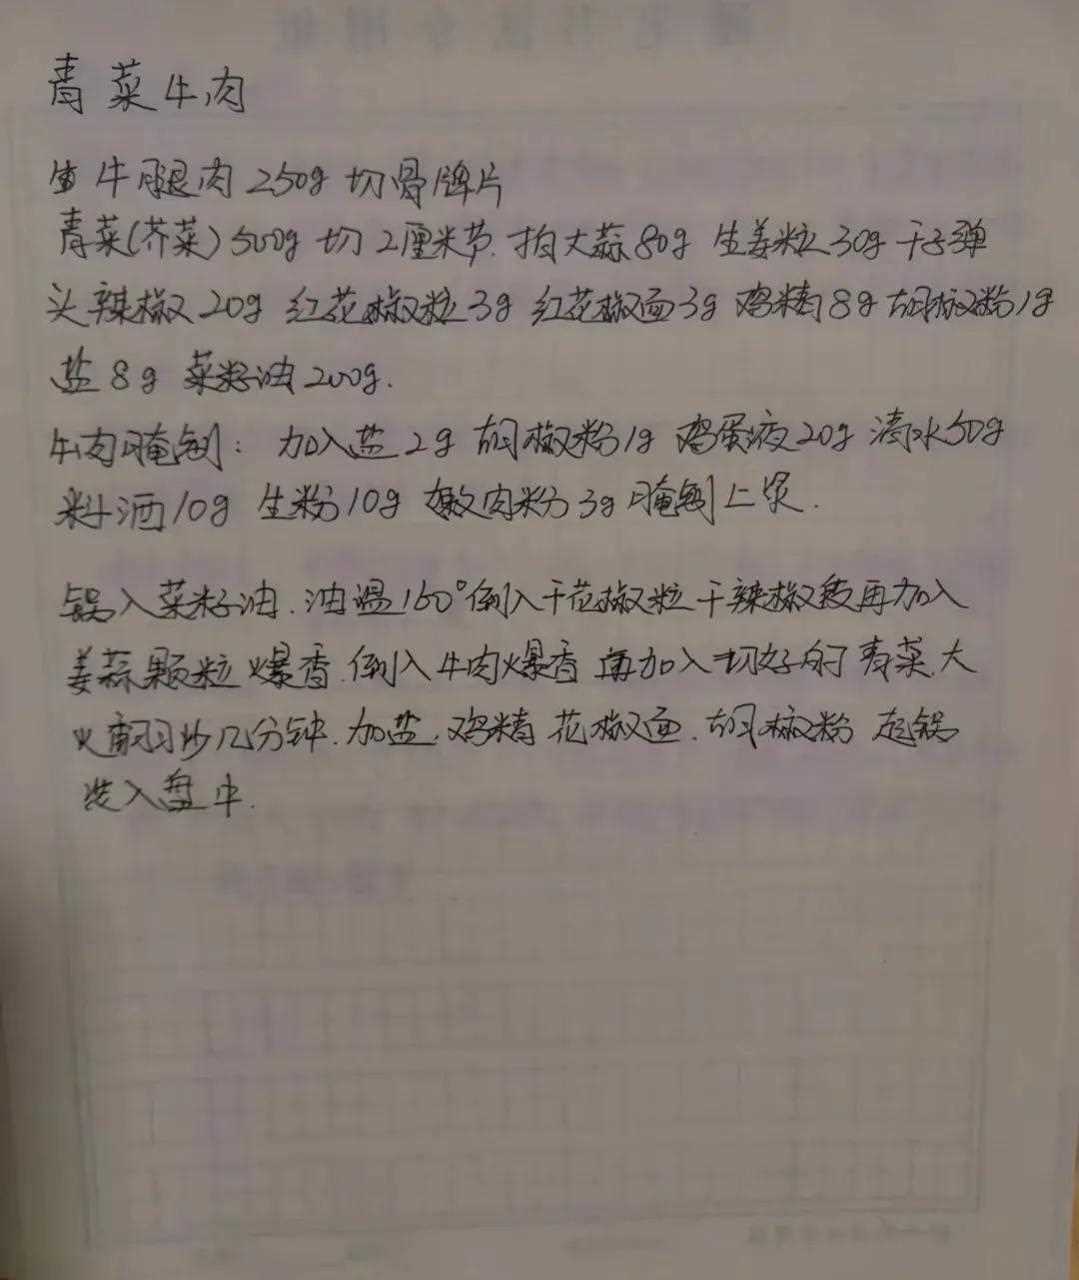 青菜牛肉
生牛腿肉250g切骨牌片
青菜(芥菜)500g切2厘米节.拍大蒜80g 生姜粒30g 干子弹
头辣椒20g 红花椒粒3g 红花椒面3g 鸡精8g 胡椒粉1g
盐8g 菜籽油200g.
牛肉腌制: 加入盐2g 胡椒粉1g 鸡蛋液20g 清水50g
料酒10g 生粉10g 嫩肉粉3g 腌制上浆.
锅入菜籽油.油温160°倒入干花椒粒干辣椒段再加入
姜蒜颗粒爆香.倒入牛肉爆香 再加入切好的青菜.大
火翻炒几分钟.加盐.鸡精 花椒面.胡椒粉 起锅
装入盘中.